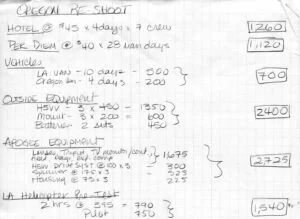 OREGON RE SHOOT
HOTEL @ $45 x 4 days x 7 crew 1260
PER DIEM @ $40 x 28 man days 1,120
VEHICLES
LA VAN - 10 days - 500
Oregon - 4 days - 200 700
OUTSIDE EQUIPMENT
HSVV - 3 x 450 - 1350
Mount - 3 x 200 = 600 2400
2 sets 450
APOGEE EQUIPMENT
Lenses, Tripod, TV monitor 1,675
HSVV Drive Syst @ 100 x 3 - 300 2725
Spinner @ 175 x 3 - 525
Housing @ 75 x 3 225
LA Helicopter Pre-Test
2 hrs @ 395 = 790 1,540
Pilot 750